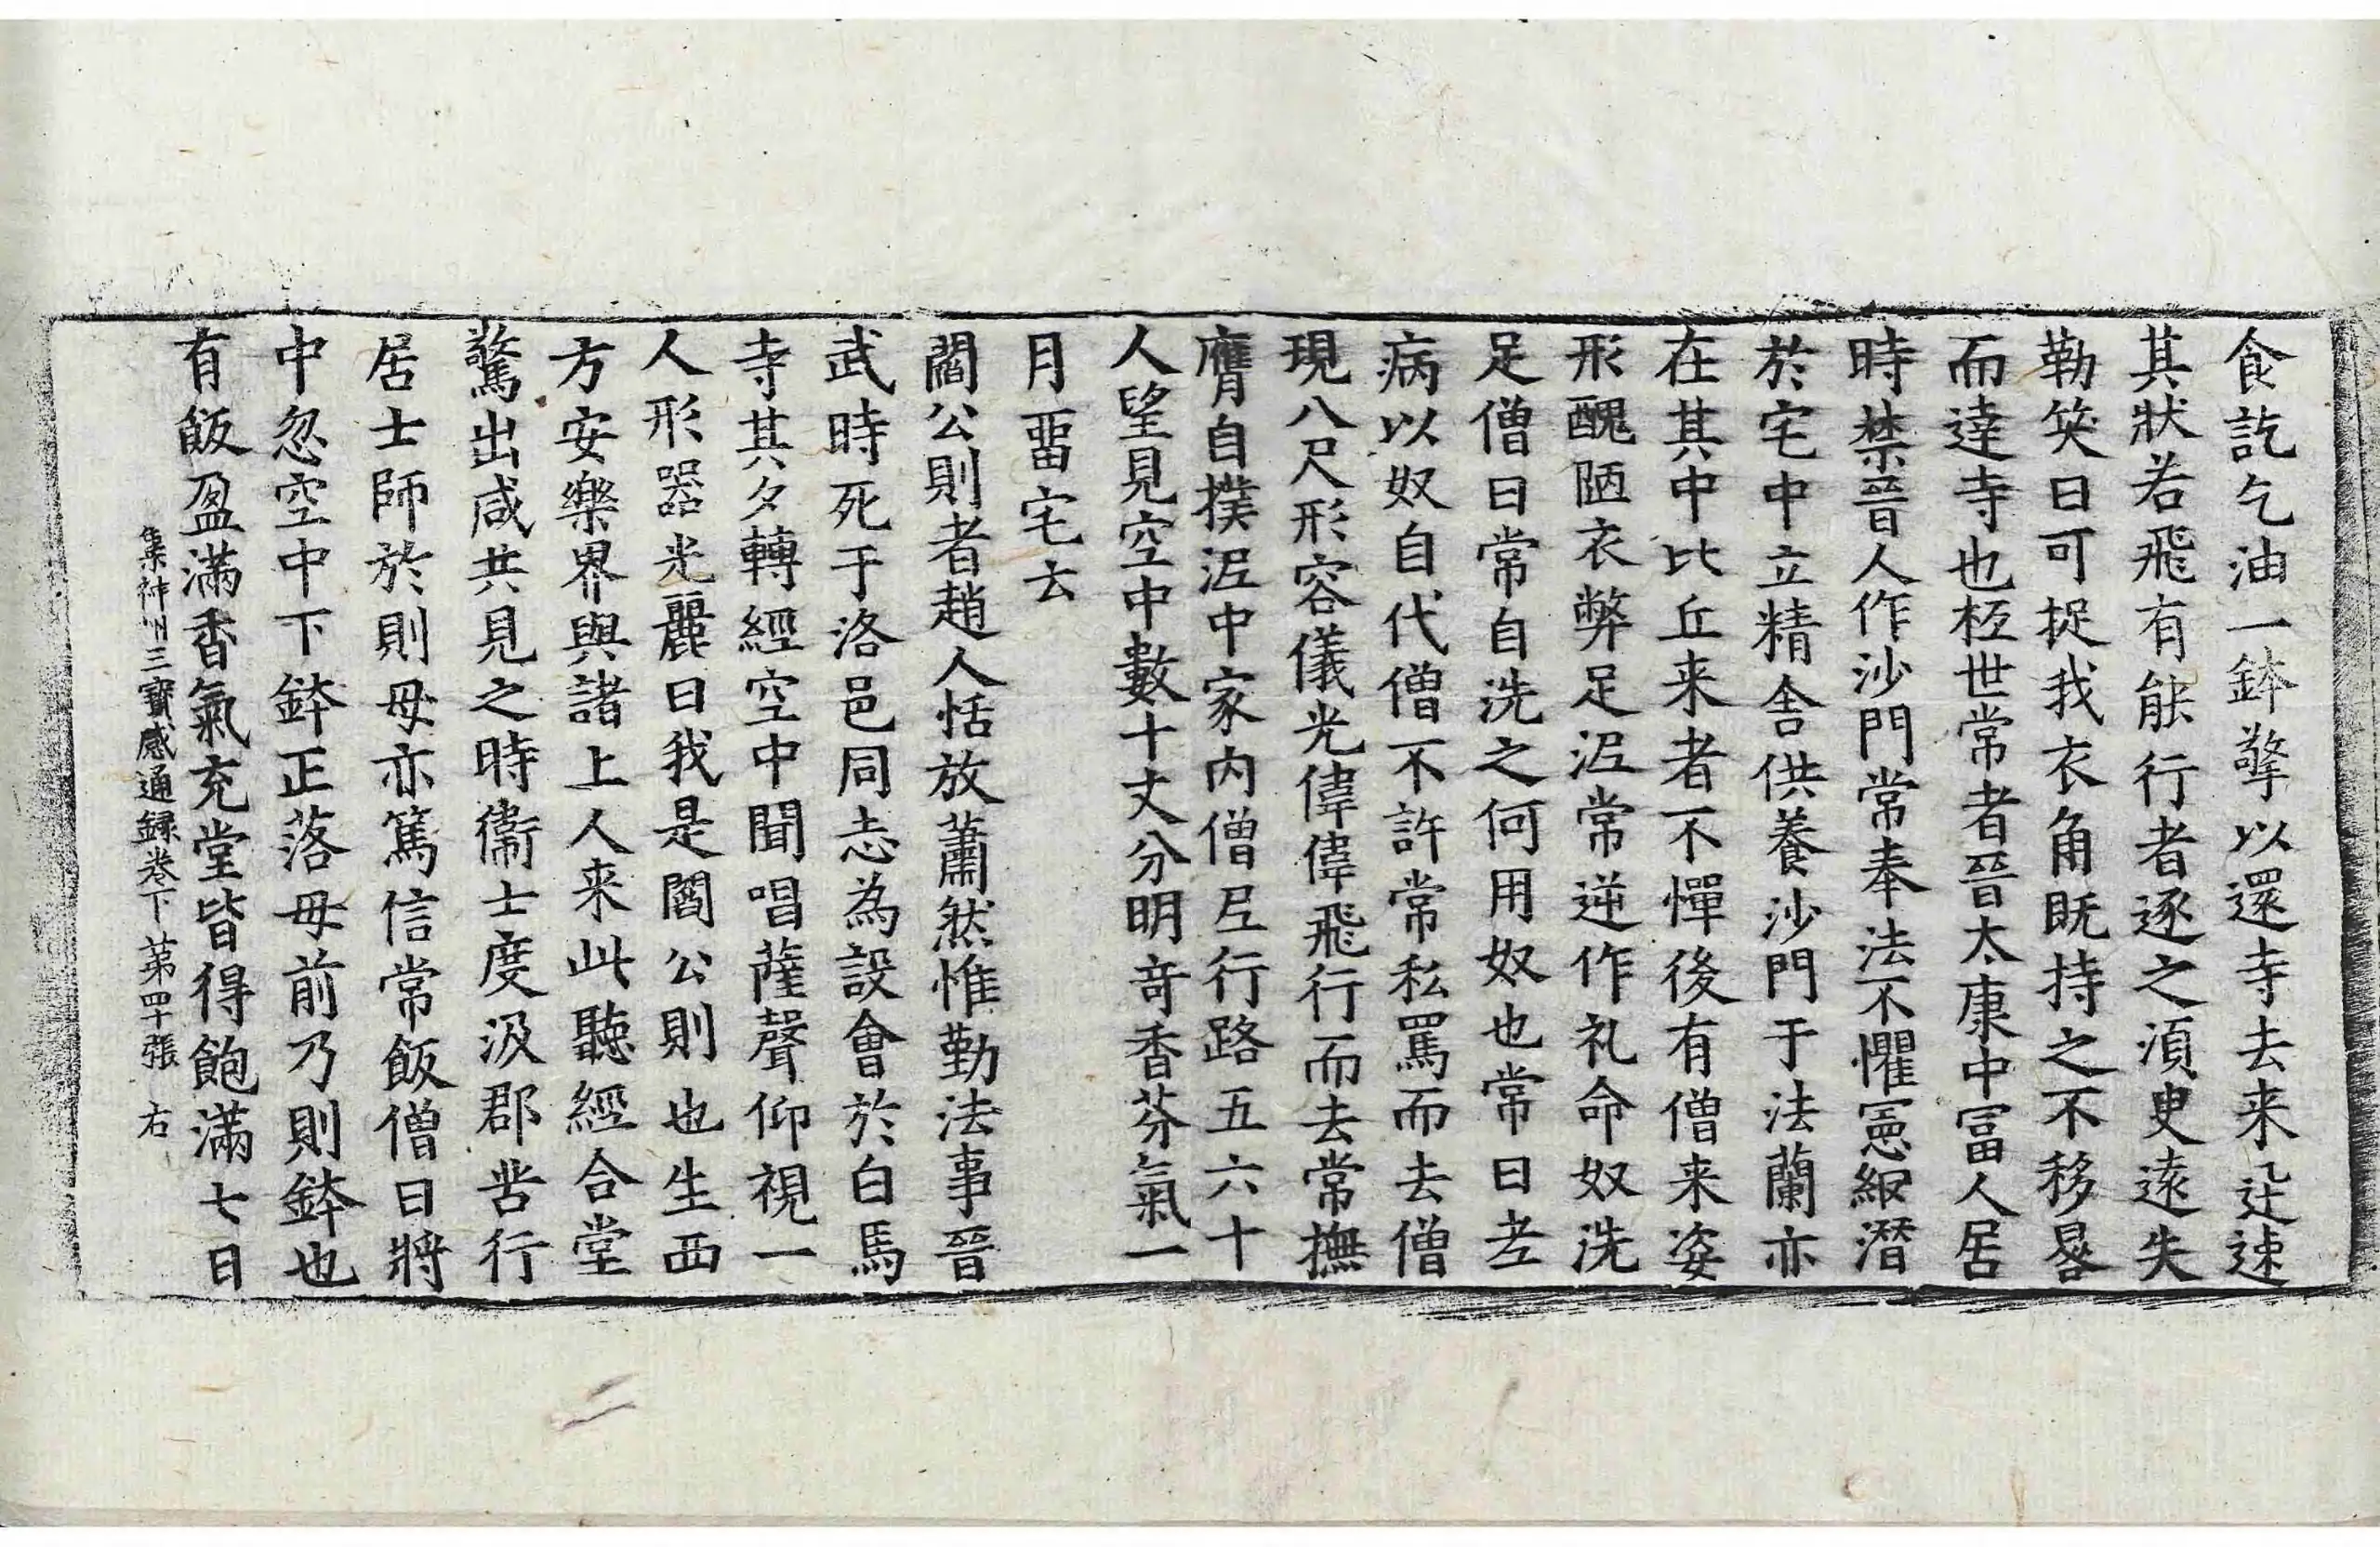 食訖乞油一鉢擎以還寺去来迅速
其狀若飛有能行者逐之湏臾遠失
勒笑曰可捉我衣角既持之不移晷
而達寺也栢世常者晉太康中冨人居
時禁晉人作沙門常奉法不懼憲網潛
於宅中立精舎供養沙門于法蘭亦
在其中比丘来者不憚後有僧来姿
形醜陋衣弊足泥常逆作礼命奴洗
足僧曰常自洗之何用奴也常曰老
病以奴自代僧不許常私罵而去僧
現八尺形容儀光偉偉飛行而去常撫
膺自撲泥中家内僧尼行路五六十
人望見空中數十丈分明竒香芬氣一
月畱宅去
閻公則者趙人恬放蕭然惟勤法事晉
武時死于洛邑同志為設會於白馬
寺其夕轉經空中聞唱薩聲仰視一
人形器光麗曰我是閻公則也生西
方安樂界與諸上人来此聽經合堂
驚出咸共見之時衞士度汲郡苦行
居士師於則母亦篤信常飯僧日將
中忽空中下鉢正落母前乃則鉢也
有飯盈滿香氣充堂皆得飽滿七日
集神州三寶感通録卷下　苐四十張　右